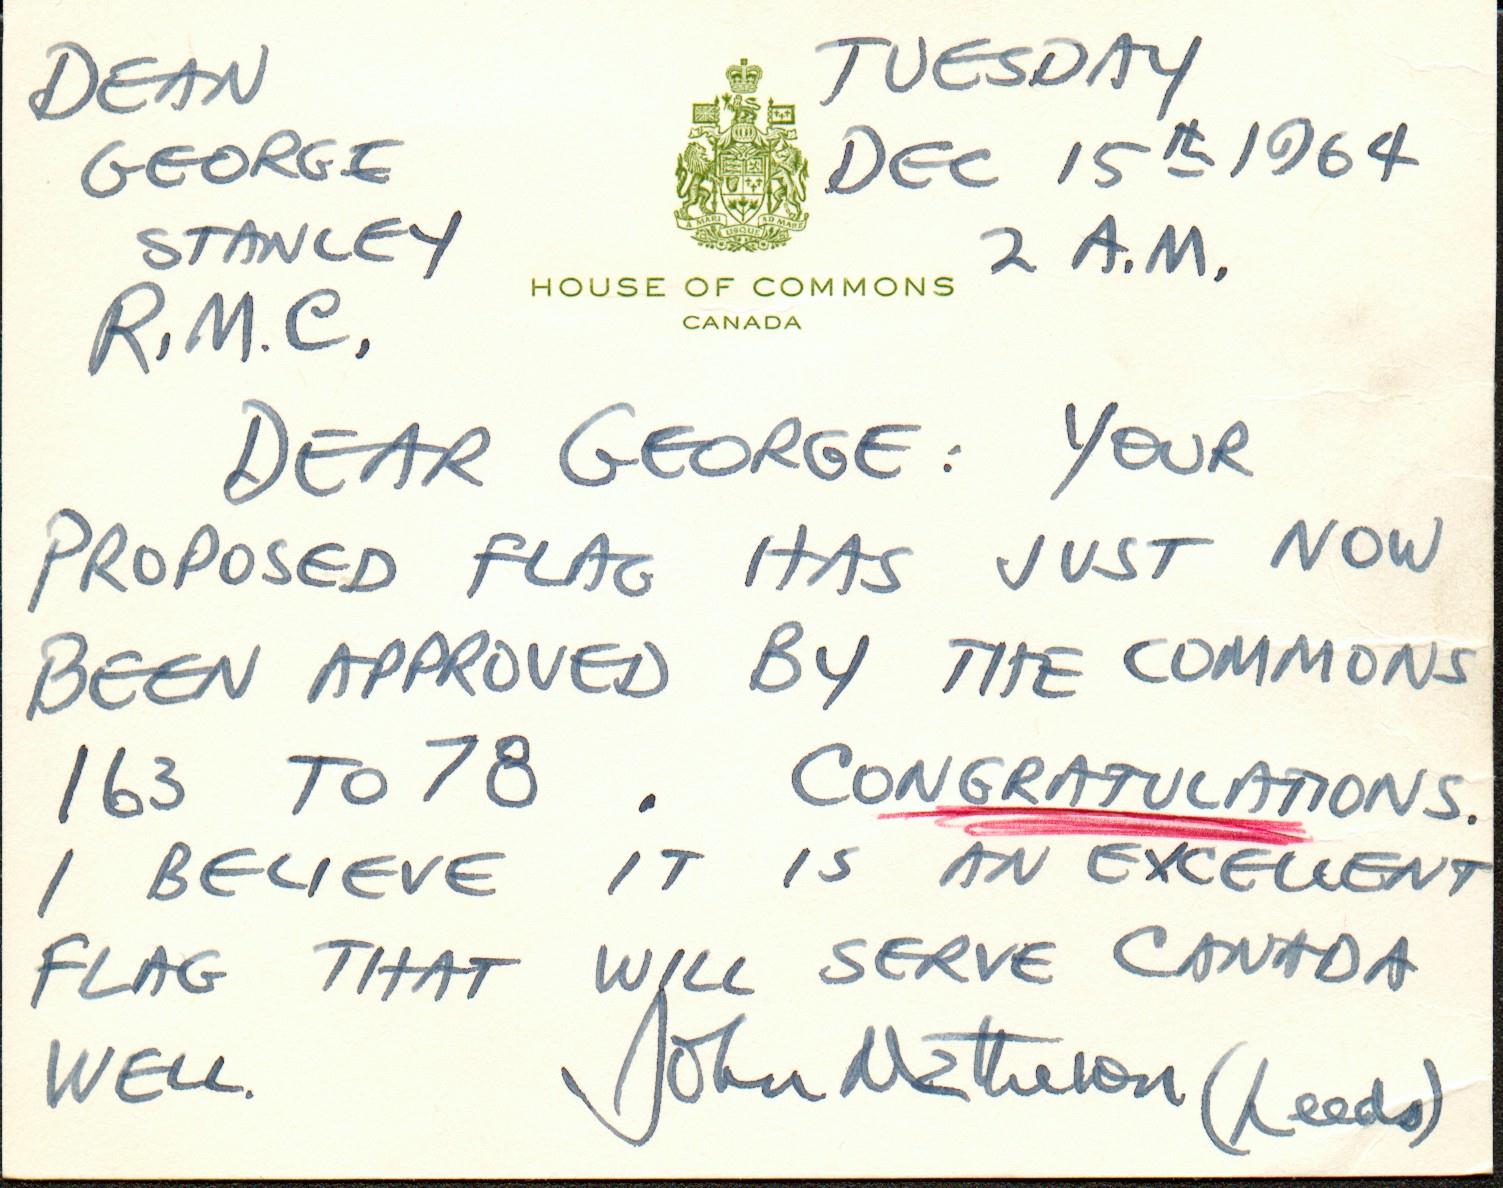 DEAN
GEORGE
STANLEY
R.M.C.
TUESDAY
DEC 15th 1964
2 A.M.
A MARI USQUE AD MARE
HOUSE OF COMMONS
CANADA
DEAR GEORGE: YOUR
PROPOSED FLAG HAS JUST NOW
BEEN APPROVED BY THE COMMONS
163 TO 78. CONGRATULATIONS.
I BELIEVE IT IS AN EXCELLENT
FLAG THAT WILL SERVE CANADA
WELL.
John Matheson (Leeds)